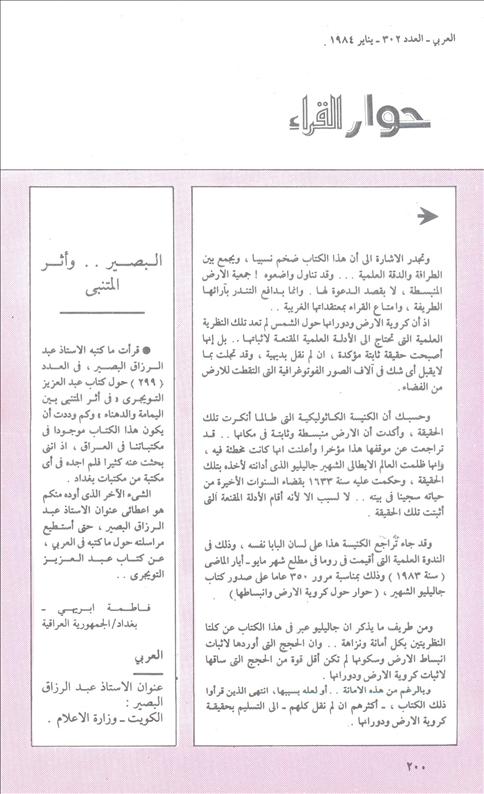 العربي - العدد ٣٠٢ - يناير ١٩٨٤ .
حوار القراء
وتجدر الاشارة الى أن هذا الكتاب ضخم نسبيا ، ويجمع بين
الطرافة والدقة العلمية . . . وقد تناول واضعوه ! جمعية الارض
المنبسطة ، لا بقصد الدعوة لها . وانما بدافع التندر بآرائها
الطريفة ، وامتاع القراء بمعتقداتها الغريبة . .
اذ أن كروية الارض ودورانها حول الشمس لم تعد تلك النظرية
العلمية التى تحتاج الى الأدلة العلمية المقنعة لاثباتها . . بل إنها
أصبحت حقيقة ثابتة مؤكدة ، ان لم نقل بديهية ، وقد تجلت بما
لايقبل أى شك فى آلاف الصور الفوتوغرافية التى التقطت للارض
من الفضاء .
وحسبك أن الكنيسة الكاثوليكية التى طالما أنكرت تلك
الحقيقة ، وأكدت أن الارض منبسطة وثابتة فى مكانها . . قد
تراجعت عن موقفها هذا مؤخرا وأعلنت انها كانت مخطئة فيه ،
وإنها ظلمت العالم الايطالى الشهير جاليليو الذى أدانته لأخذه بتلك
الحقيقة ، وحكمت عليه سنة ١٦٣٣ بقضاء السنوات الأخيرة من
حياته سجينا فى بيته . . لا لسبب الا لأنه أقام الأدلة المقنعة التى
أثبتت تلك الحقيقة .
وقد جاء تراجع الكنيسة هذا على لسان البابا نفسه ، وذلك فى
الندوة العلمية التى أقيمت فى روما فى مطلع شهر مايو - أيار الماضى
( سنة ١٩٨٣ ) وذلك بمناسبة مرور ٣٥٠ عاما على صدور كتاب
جاليليو الشهير ، ( حوار حول كروية الارض وانبساطها )
ومن طريف ما يذكر ان جاليليو عبر فى هذا الكتاب عن كلتا
النظريتين بكل أمانة ونزاهة . . وان الحجج التى أوردها لاثبات
انبساط الارض وسكونها لم تكن أقل قوة من الحجج التى ساقها
لاثبات كروية الارض ودورانها .
وبالرغم من هذه الامانة . . أو لعله بسببها ، انتهى الذين قرأوا
ذلك الكتاب ، - أكثرهم ان لم نقل كلهم - الى التسليم بحقيقة
كروية الارض ودورانها .
البصير . . وأثر
المتنبى
● قرأت ما كتبه الاستاذ عبد
الرزاق البصير ، فى العدد
( ٢٩٩ ) حول كتاب عبد العزيز
التويجرى « فى أثر المتنبى بين
اليمامة والدهناء » وكم وددت أن
يكون هذا الكتاب موجودا فى
مكتباتنا فى العراق ، اذ اننى
بحثت عنه كثيرا فلم اجده فى أى
مكتبة من مكتبات بغداد .
الشىء الآخر الذى أوده منكم
هو اعطائى عنوان الاستاذ عبد
الرزاق البصير ، حتى أستطيع
مراسلته حول ما كتبه فى العربي ،
عن كتاب عبد العزيز
التويجرى . .
فاطمة ابريهى -
بغداد/الجمهورية العراقية
العربي
عنوان الاستاذ عبد الرزاق
البصير :
الكويت - وزارة الاعلام .
٢٠٠